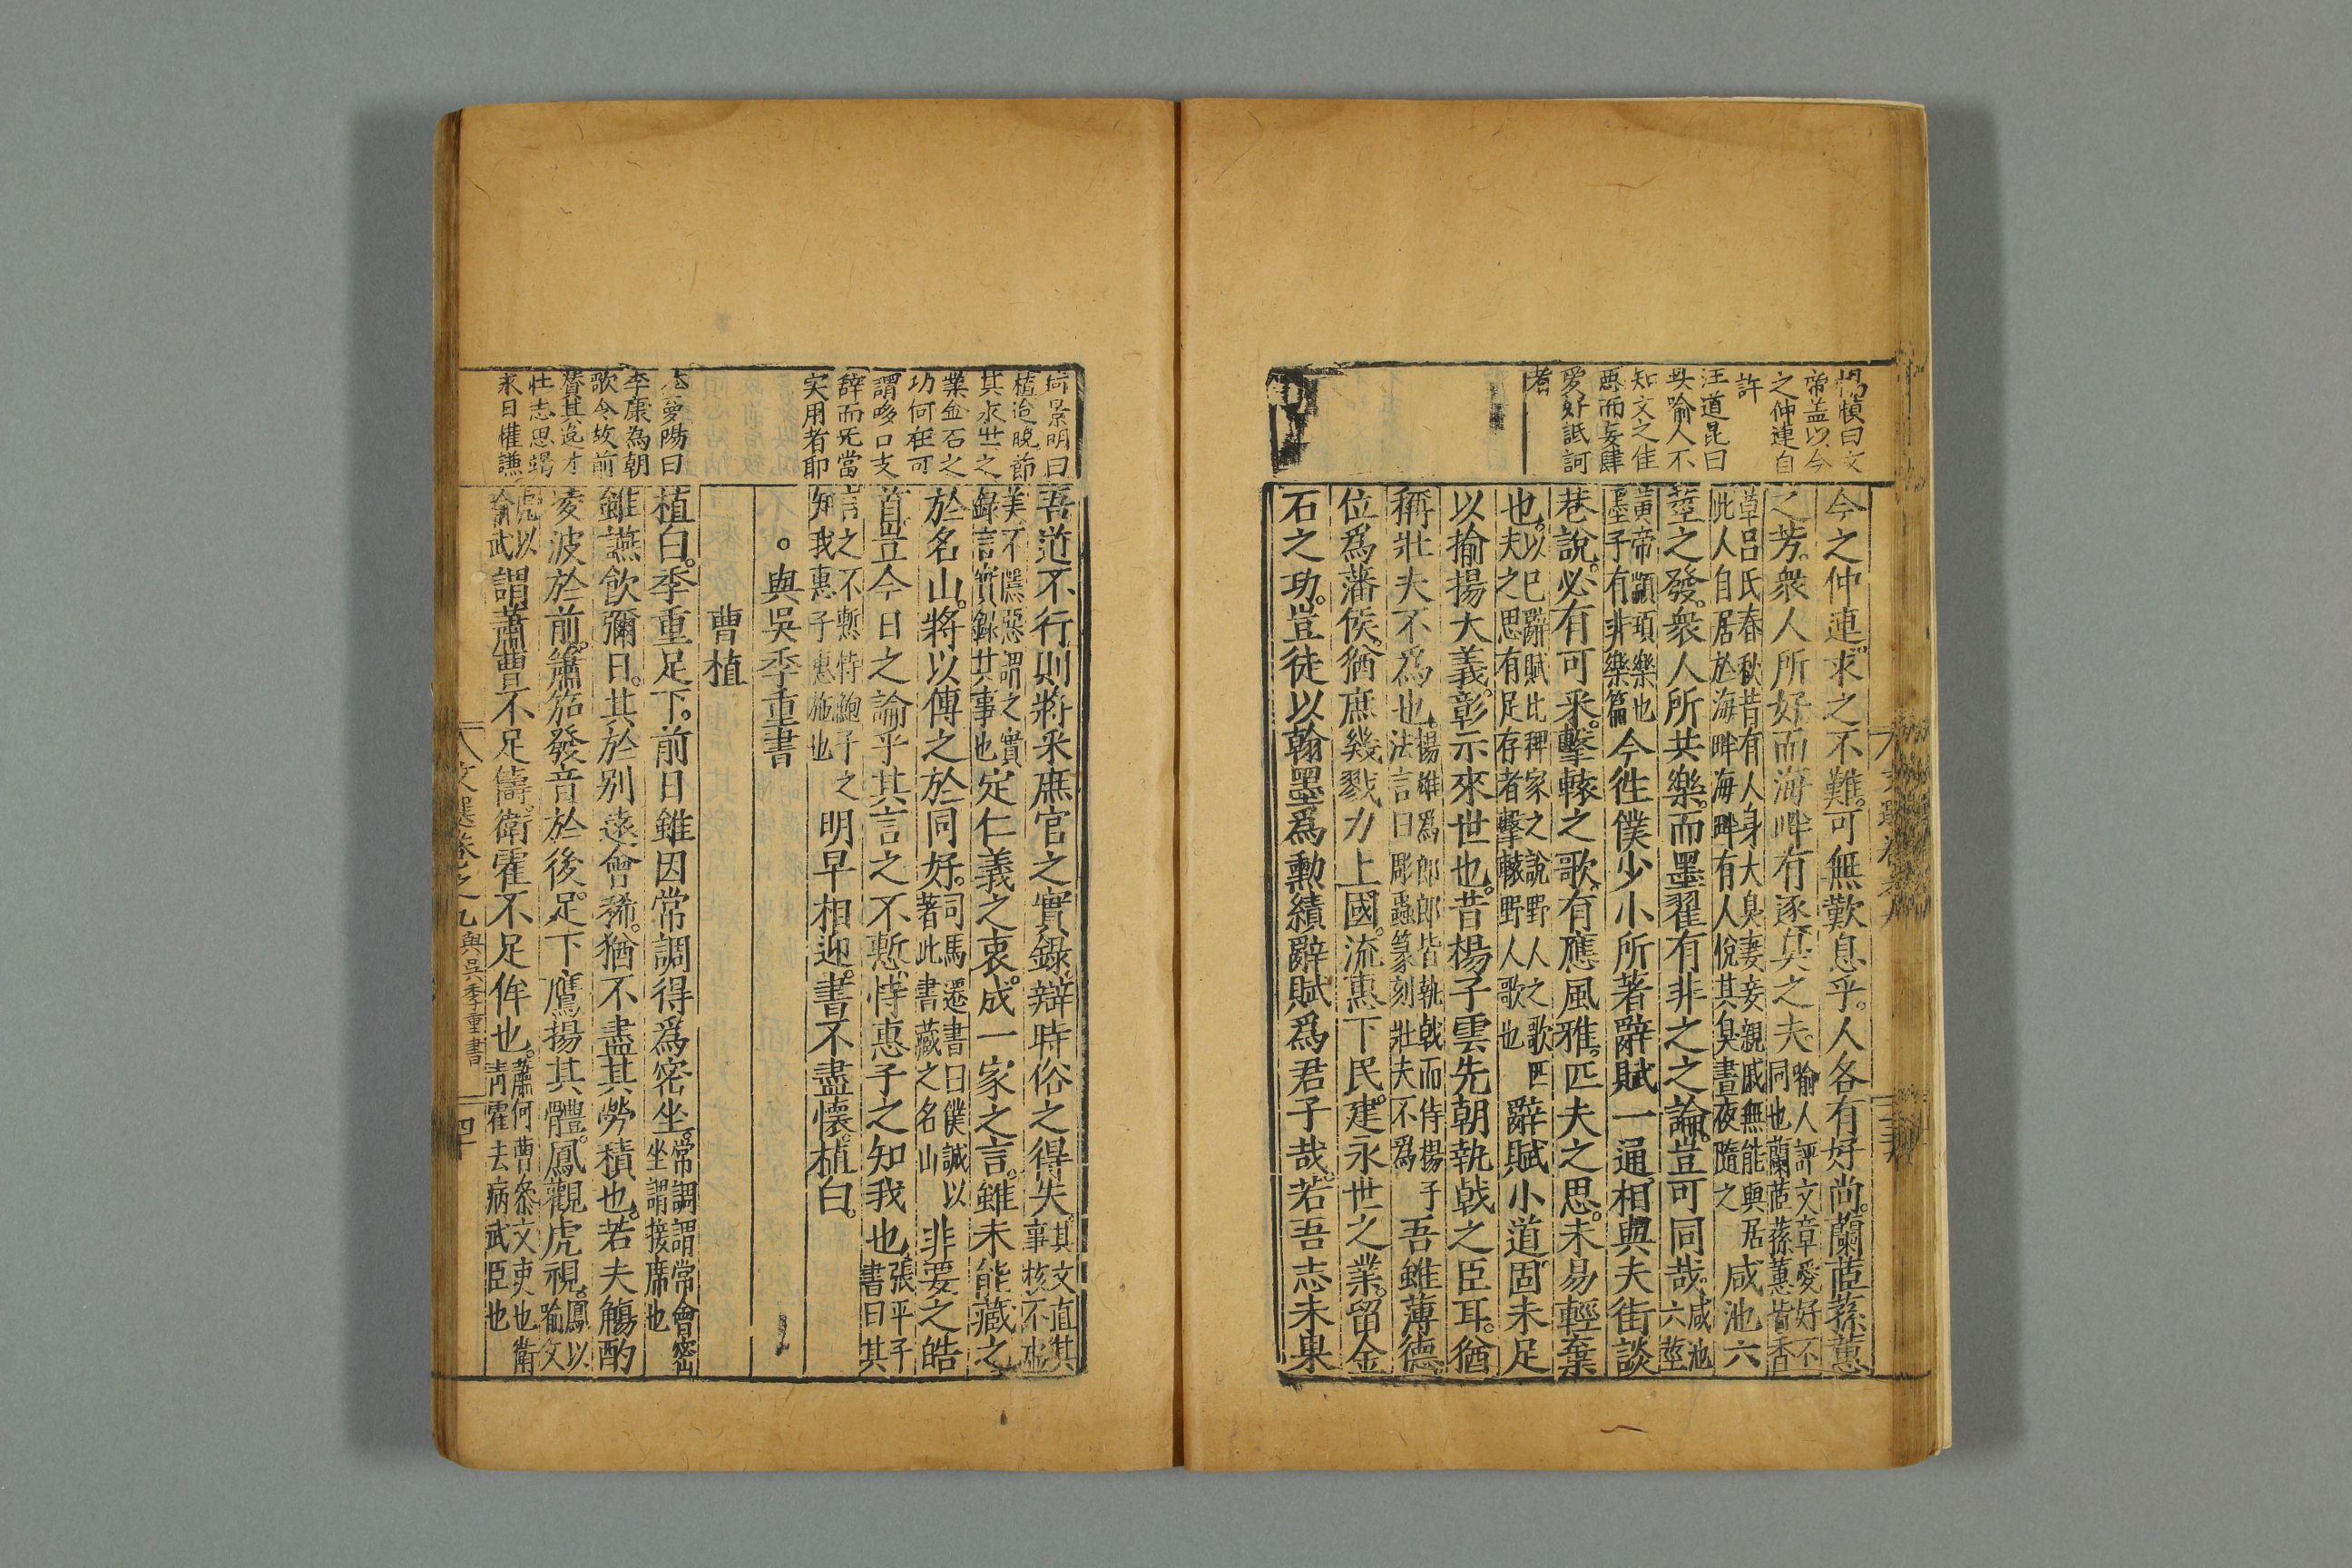 楊慎曰文
帝蓋以今
之仲連自
許
汪道昆曰
此喻人不
知文之佳
惡而妄肆
愛好詆訶
者
今之仲連求之不難可無歎息乎人各有好尚蘭茝蓀蕙
之芳衆人所好而海畔有逐臭之夫喻人評文章愛好不
同也蘭茝蓀蕙皆香
草吕氏春秋昔有人身大臭妻妾親戚無能與居
此人自居於海畔海畔有人悅其臭晝夜隨之咸池六
莖之發衆人所共樂而墨翟有非之之論豈可同哉咸池
六莖
黃帝顓頊樂也
墨子有非樂篇今徃僕少小所著辭賦一通相與夫街談
巷說必有可采擊轅之歌有應風雅匹夫之思未易輕棄
也以已辭賦比稗家之說野人之歌匹
夫之思有足存者擊轅野人歌也辭賦小道固未足
以揄揚大義彰示來世也昔楊子雲先朝執戟之臣耳猶
稱壯夫不爲也楊雄爲郎郎皆執戟而侍楊子
法言曰彫蟲篆刻壯夫不爲吾雖薄德
位爲藩侯猶庶幾戮力上國流惠下民建永世之業留金
石之功豈徒以翰墨爲勳績辭賦爲君子哉若吾志未果
何景明曰
植迨晚節
其永世之
業金石之
功何在可
謂哆口支
辭而旡當
实用者耶
吾道不行則將采庶官之實錄辯時俗之得失其文直其
事核不虛
美不隱惡謂之實
錄言實錄其事也定仁義之衷成一家之言雖未能藏之
於名山將以傳之於同好司馬遷書曰僕誠以
著此書藏之名山非要之皓
首豈今日之論乎其言之不慙恃惠子之知我也張平子
書曰其
言之不慙恃鮑子之
知我惠子惠施也明早相迎書不盡懷植白
與吳季重書
曹植
李夢陽曰
李康為朝
歌令故前
贊其逸才
壮志思竭
永日權讌
植白季重足下前日雖因常調得爲密坐常調謂常會密
坐謂接席也
雖讌飲彌日其於別遠會稀猶不盡其勞積也若夫觴酌
凌波於前簫笳發音於後足下鷹揚其體鳳觀虎視鳳以
喻文
虎以
喻武謂蕭曹不足儔衛霍不足侔也蕭何曹叅文吏也衛
青霍去病武臣也
文選卷之九 與吳季重書 四十